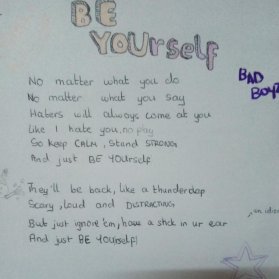 BE
YOUrself
BAD
BOYZ
No matter what you do
No matter what you say
Haters will always come at you
Like I hate you, no play
So keep CALM, Stand STRONG
And just BE YOUrself
They'll be back, like a thunderclap
Scary, loud and DISTRACTING
But just ignore 'em, have a stick in ur ear
And just BE YOUrself!